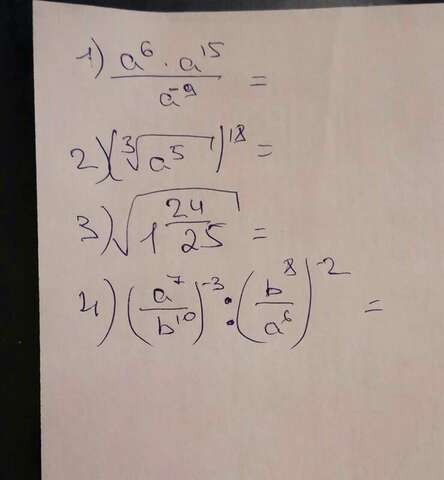 1) a⁶ · a¹⁵ / a⁻⁹ =
2) (∛a⁵)¹⁸ =
3) √(1 24/25) =
4) (a⁷/b¹⁰)⁻³ : (b⁸/a⁶)⁻² =